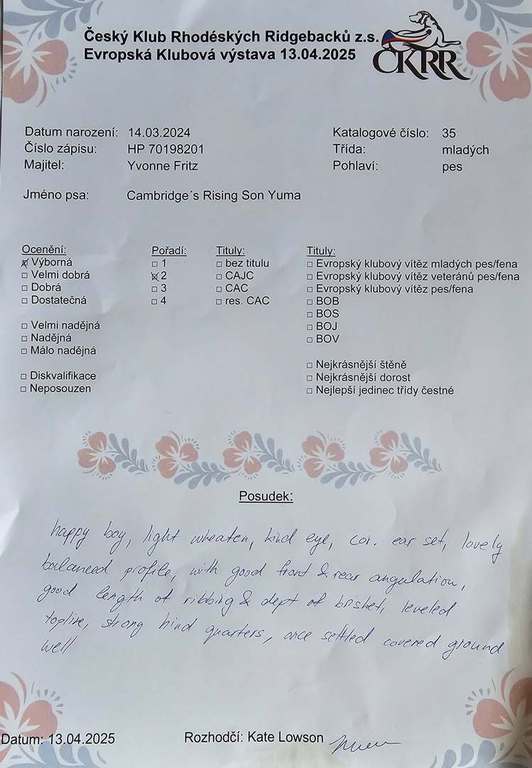 Český Klub Rhodéských Ridgebacků z.s.
Evropská Klubová výstava 13.04.2025
ČKRR
Datum narození: 14.03.2024 Katalogové číslo: 35
Číslo zápisu: HP 70198201 Třída: mladých
Majitel: Yvonne Fritz Pohlaví: pes
Jméno psa: Cambridge´s Rising Son Yuma
Ocenění: Pořadí: Tituly: Tituly:
☒ Výborná □ 1 □ bez titulu □ Evropský klubový vítěz mladých pes/fena
□ Velmi dobrá ☒ 2 □ CAJC □ Evropský klubový vítěz veteránů pes/fena
□ Dobrá □ 3 □ CAC □ Evropský klubový vítěz pes/fena
□ Dostatečná □ 4 □ res. CAC □ BOB
□ BOS
□ Velmi nadějná □ BOJ
□ Nadějná □ BOV
□ Málo nadějná
□ Nejkrásnější štěně
□ Diskvalifikace □ Nejkrásnější dorost
□ Neposouzen □ Nejlepší jedinec třídy čestné
Posudek:
happy boy, light wheaten, kind eye, cor. ear set, lovely
balanced profile, with good front & rear angulation,
good length of ribbing & dept of brisket, leveled
topline, strong hind quarters, once settled covered ground
well
Datum: 13.04.2025 Rozhodčí: Kate Lowson